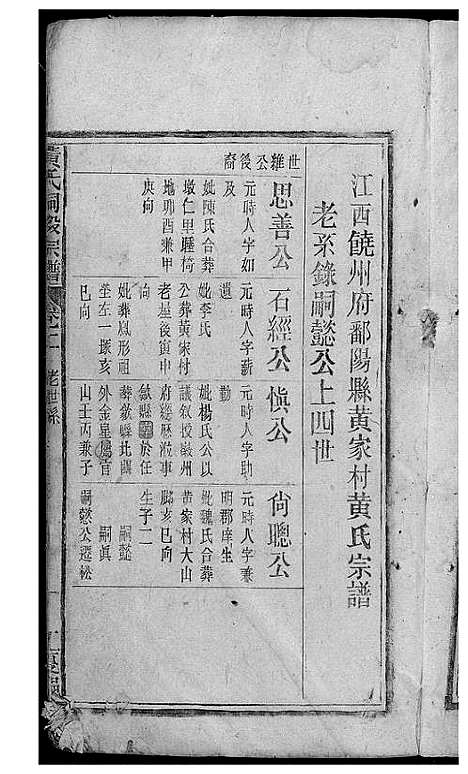 江西饒州府鄱陽縣黄家村黄氏宗譜
老系錄嗣懿公上四世
世雜公後裔
思善公
元時人字如
及
妣陳氏合葬
墩仁里騄椅
地卯酉兼甲
庚向
石經公
元時人字薪
遺
妣李氏
公葬黄家村
老屋後寅申
向
妣葬鳳形祖
坐左一㧻亥
巳向
慎公
元時人字助
勤
妣楊氏公以
議叙授徽州
府經歷涖事
歙縣
於任
葬歙縣北關
外金星
山壬丙兼子
尙聰公
元時人字兼
明郡庠生
妣魏氏合葬
黄家村大山
脚亥巳向
生子二
嗣懿
嗣眞
嗣懿公遷松
黄氏
宗譜
卷二
老世系